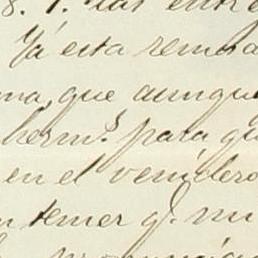 8. 1. las entre
Ya esta remora
ma, que aunque
herm.s para qu
en el venidero
n temer q. mi